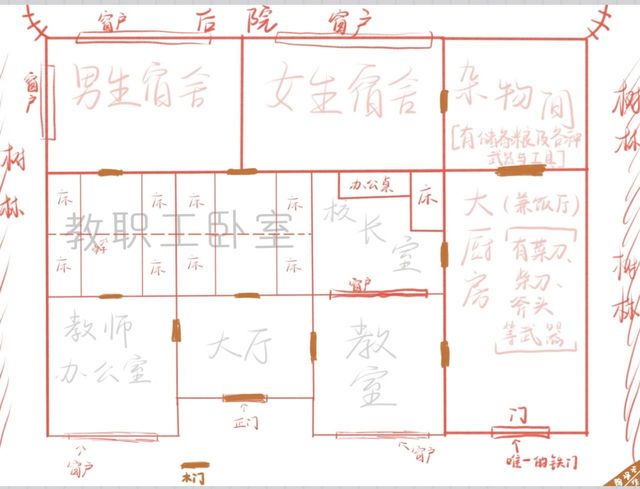 窗户 后院 窗户
窗户
男生宿舍
女生宿舍
杂物间
[有储备粮及各种
武器与工具]
树林
树林
床 床 床 床
办公桌
床
教职工卧室
校长室
床 床 床 床
大厨房
(兼饭厅)
有菜刀、
柴刀、
斧头
等武器
树林
窗户
教师
办公室
大厅
教室
正门
门
窗户
窗户
唯一的铁门
木门